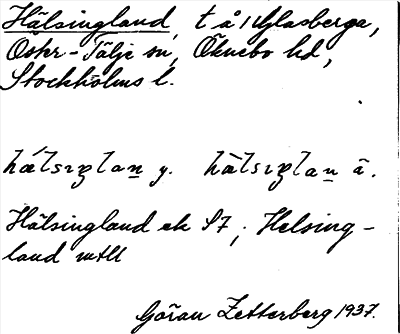 Hälsingland, t å 1 Glasberga,
Östr-Tälje sn, Öknebo hd,
Stockholms l.
hǽlsıŋlan y. hæ̀lsıŋlan ä.
Hälsingland ek 57; Helsing-
land mtll
Göran Zetterberg 1937.